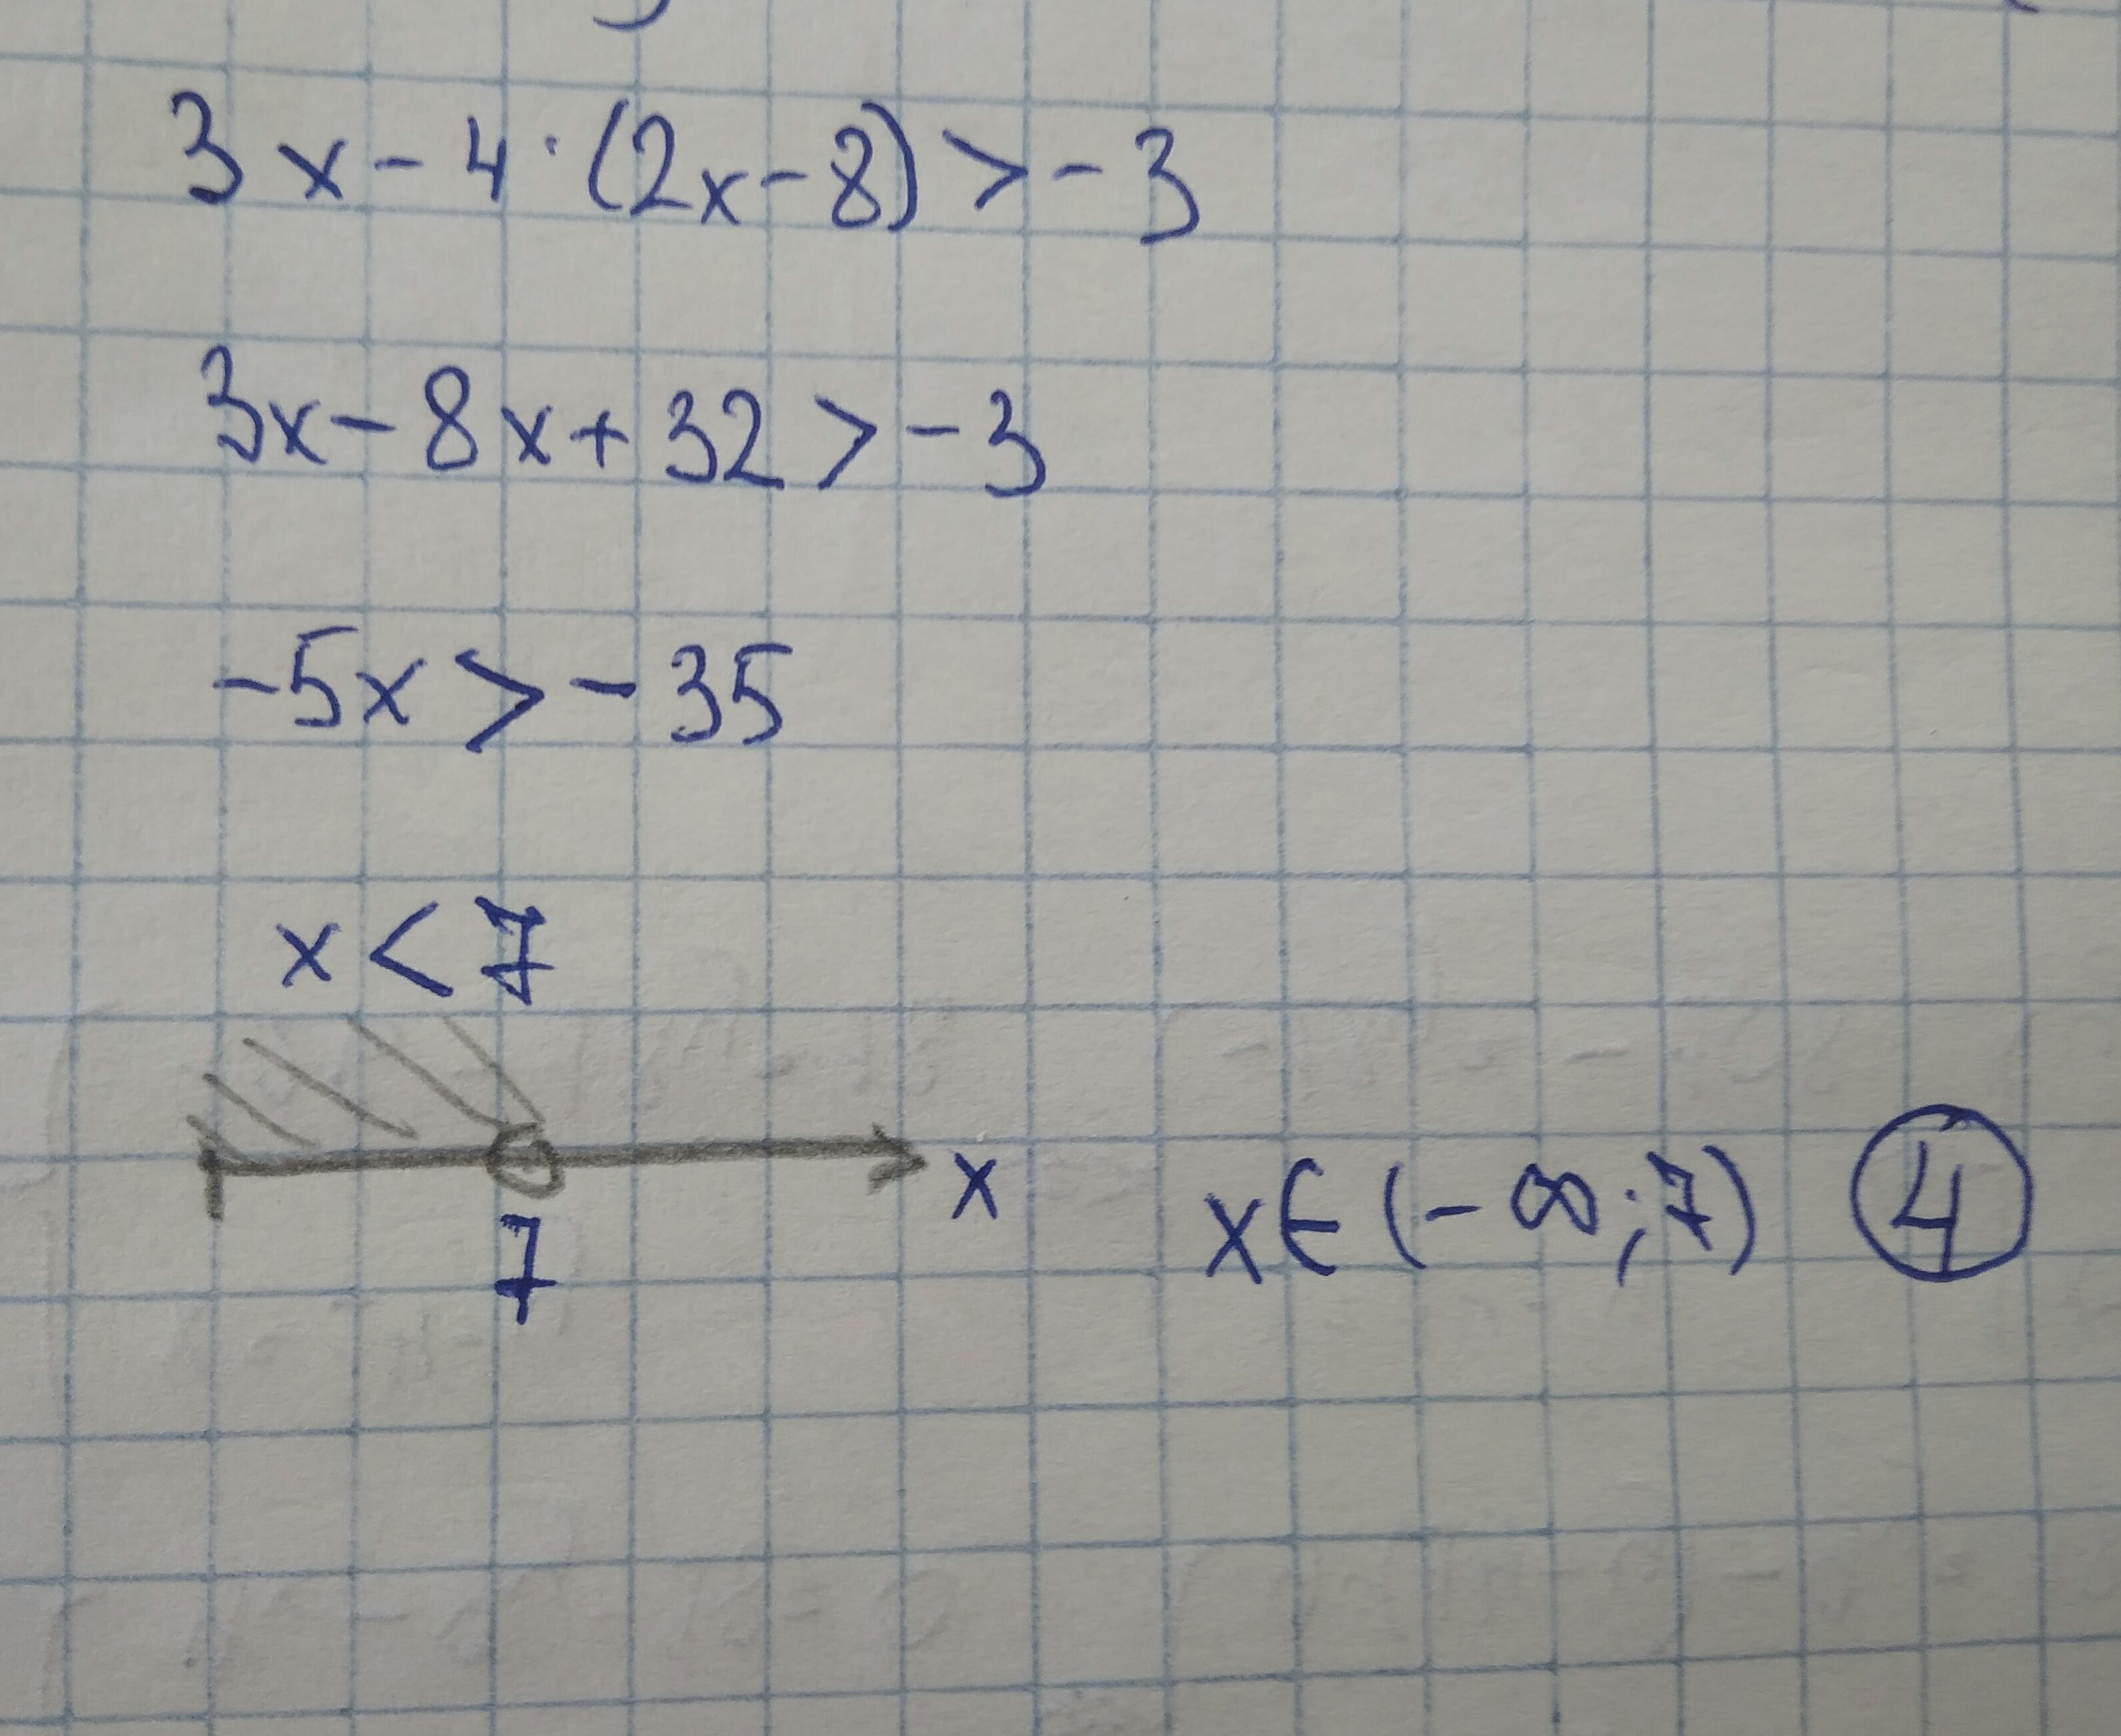 3x-4·(2x-8)>-3
3x-8x+32>-3
-5x>-35
x<7
x
7
x∈(-∞;7) 4